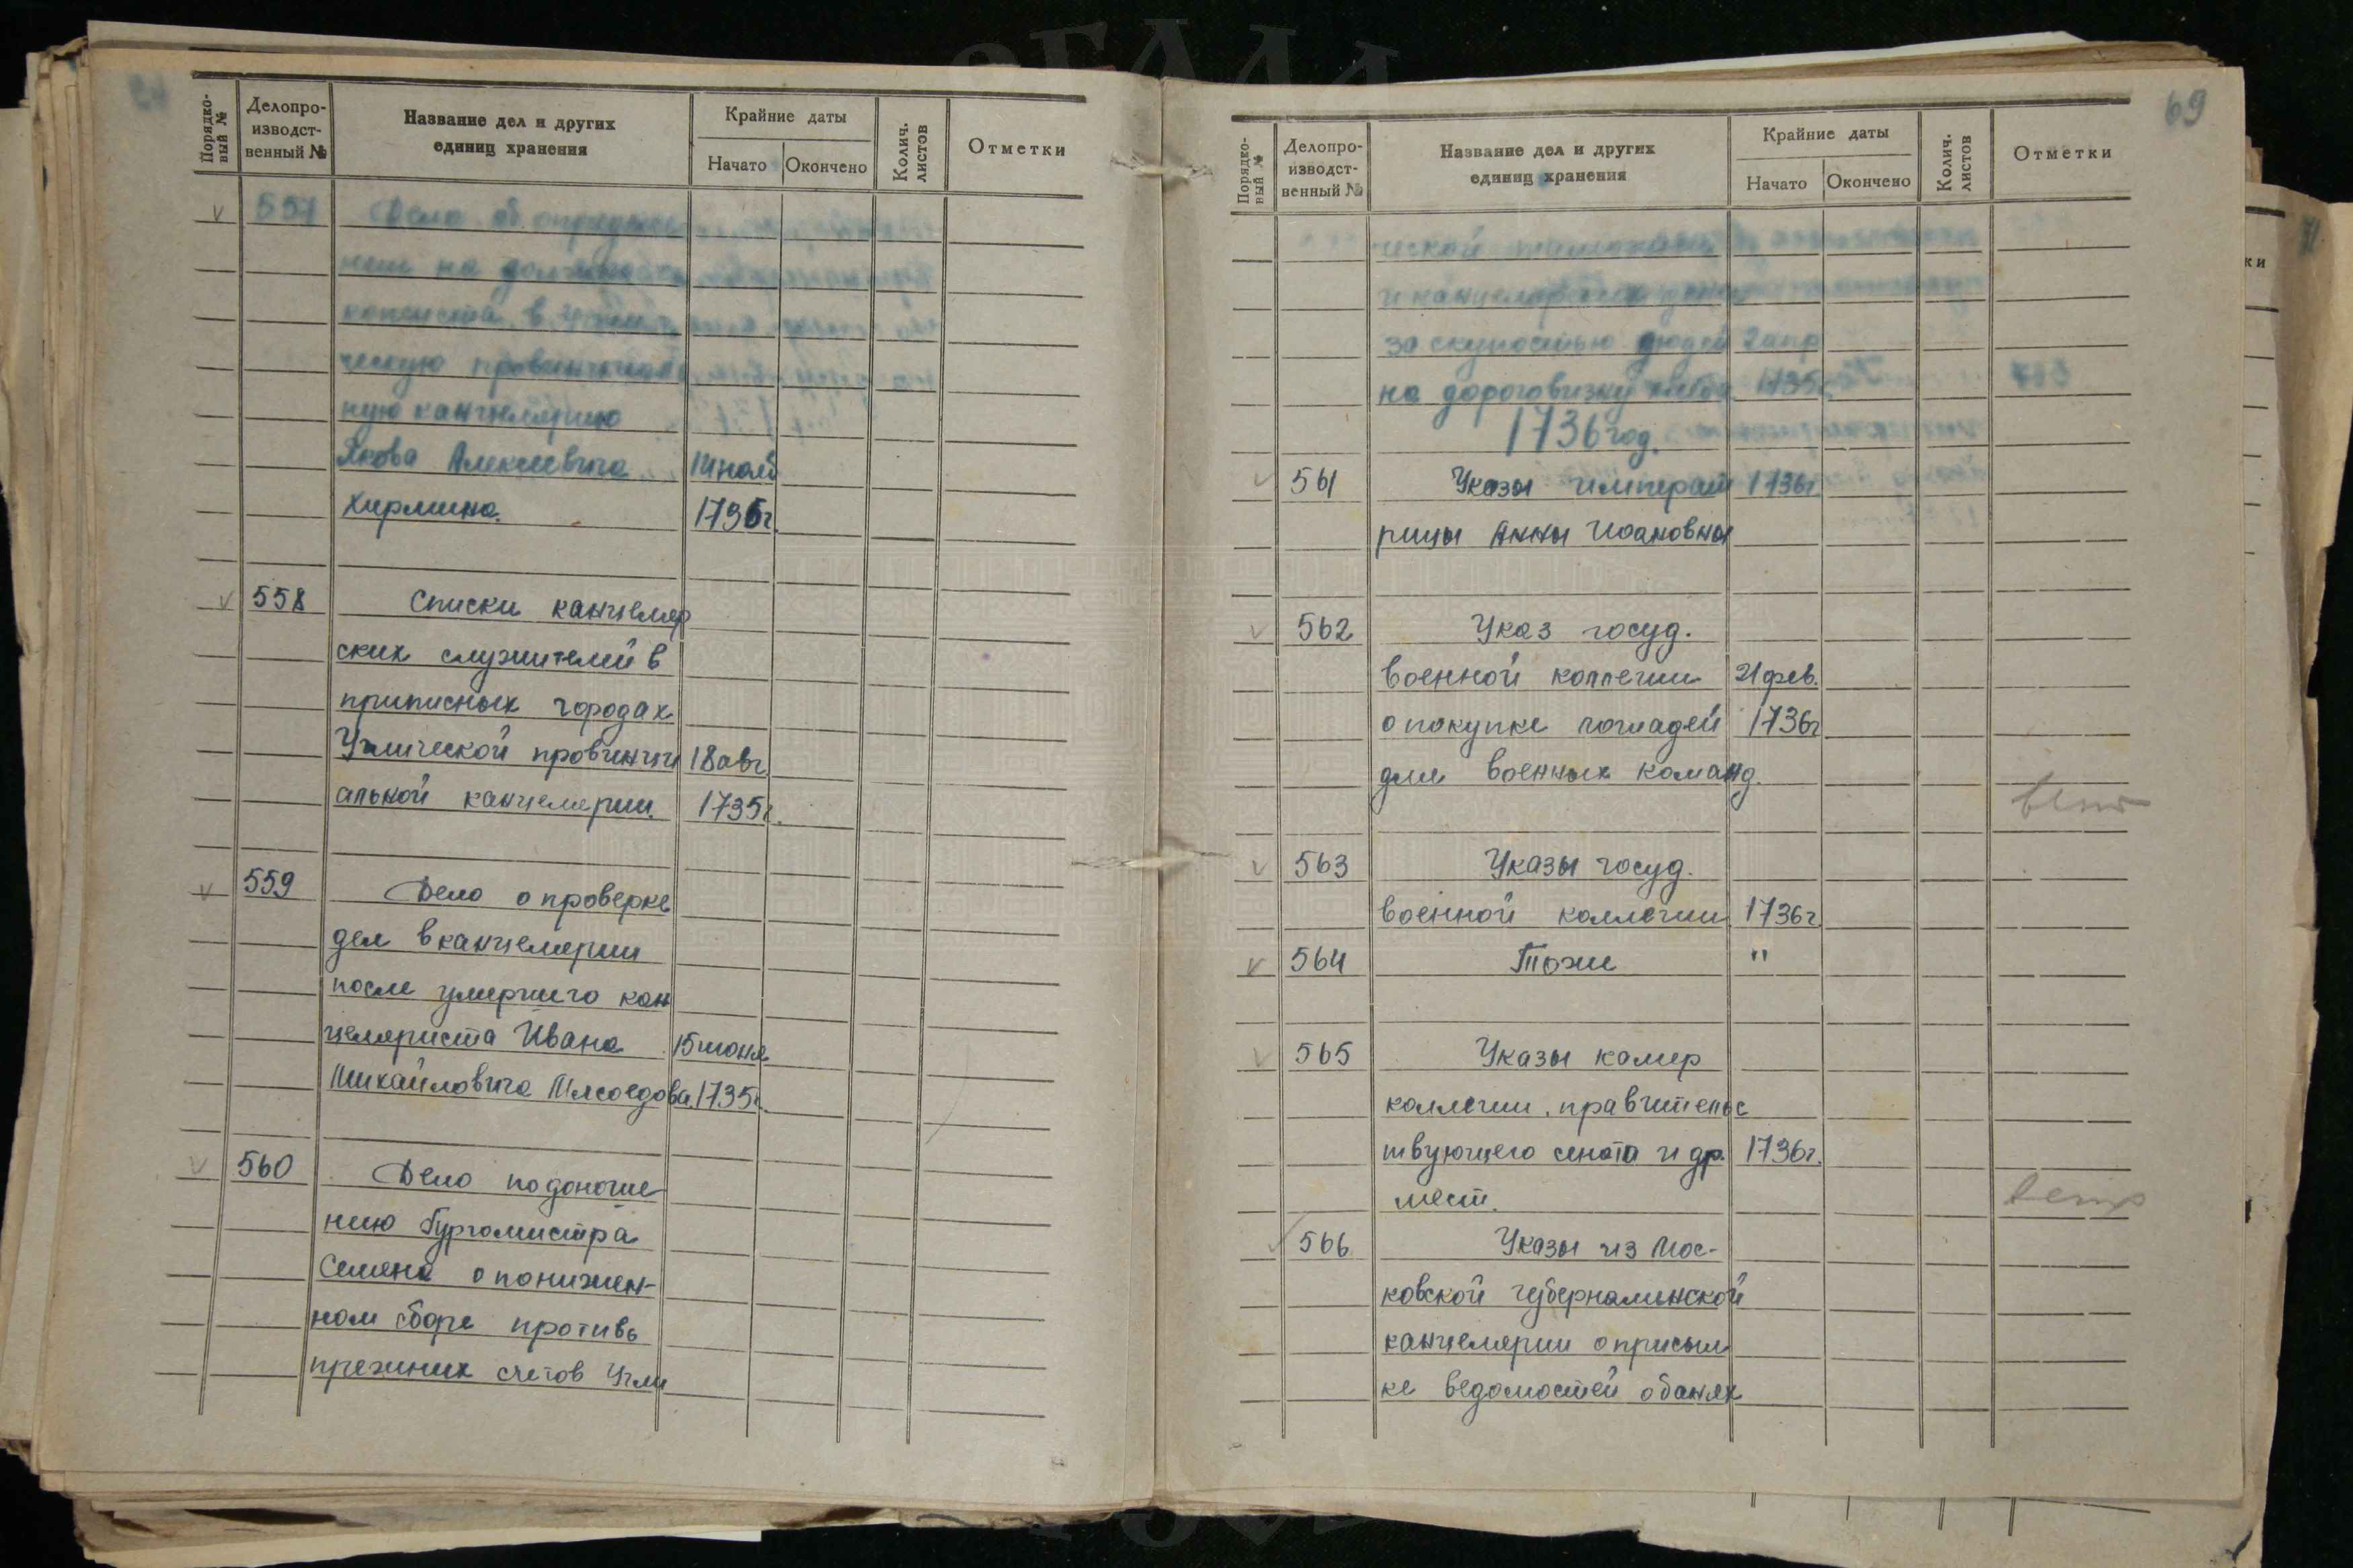 Порядковый №
Делопроизводственный №
Название дел и других единиц хранения
Крайние даты
Начато
Окончено
Колич. листов
Отметки
557 Дело об определе
нии на должность
кописта в Угли
ческую провинциал
ную канцелярию
Якова Алексеевича
Хирлина. 1735г.
558 Списки канцеляр
ских служителей в
приписных городах
Углической провинци 18 авг.
альной канцелярии. 1735г.
559 Дело о проверке
дел в канцелярии
после умершего кан
целяриста Ивана 15 июня
Михайловича Мясоедова. 1735г.
560 Дело по доноше
нию бургомистра
Семена о понижен-
ном сборе противъ
прежних счетов Угли
69
Порядковый №
Делопроизводственный №
Название дел и других единиц хранения
Крайние даты
Начато
Окончено
Колич. листов
Отметки
ческой
и канцелярских
за скупостью людей 2 апр
на дороговизну хлеба 1735г.
1736 год.
561 Указы императ 1736г
рицы Анны Иоановны
562 Указ госуд.
военной коллегии 21 фев.
о покупке лошадей 1736г
для военных команд.
563 Указы госуд.
военной коллегии 1736г
564 Тоже "
565 Указы камер
коллегии, правительс
твующего сената и др. 1736г.
мест.
566 Указы из Мос-
ковской губернаминской
канцелярии о присыл
ке ведомостей о банях